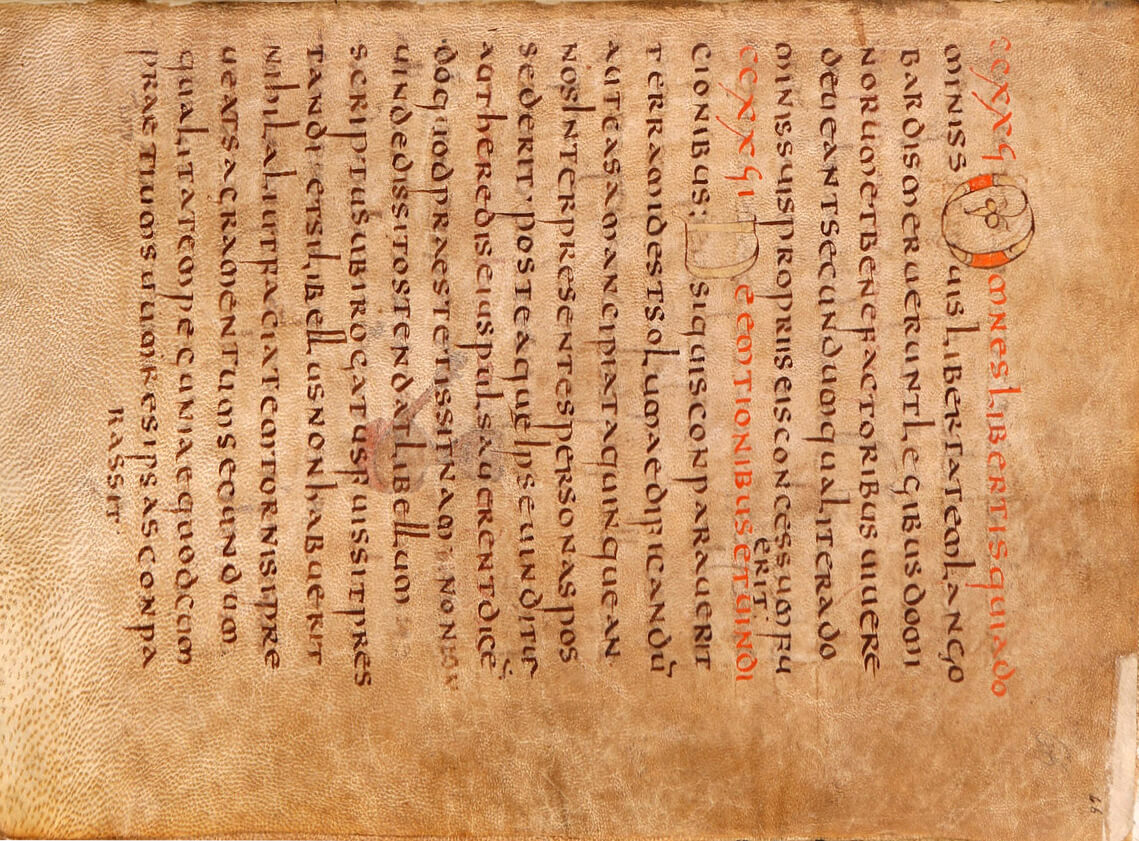 66
CCXXϚ OMNESLIBERTISQUIADO
MINISSUISLIBERTATEMLANGO
BARDISMERUERUNTLEGIBUSDOMI
NORUMETBENEFACTORIBUSUIUERE
DEUEANTSECUNDUMQUALITERADO
MINISSUISPROPRIISEISCONCESSUMFU
ERIT:
CCXXϚI DEEMTIONIBUSETUINDI
CIONIBUS; SIQUISCONPARAUERIT
TERRAMIDESTSOLUMAEDIFICANDŪ
AUTCASAMANCIPIATAQUINQUEAN
NOSINTERPRESENTESPERSONASPOS
SEDERIT· POSTEAQUEIPSEUINDITUR
AUTHEREDISEIUSPULSAUERENTDICĒ
DOQUODPRAESTETISSITNAM NON
UINDEDISSITOSTENDATLIBELLUM
SCRIPTUSUBIROGATUSFUISSITPRES
TANDI· ETSILIBELLUSNONHABUERIT
NIHILALIUTFACIATEMTORNISIPRE
UEATSACRAMENTUMSECUNDUM.
QUALITATEMPECUNIAEQUODCUM
PRAETIUMSUUMRESIPSASCONPA
RASSIT·